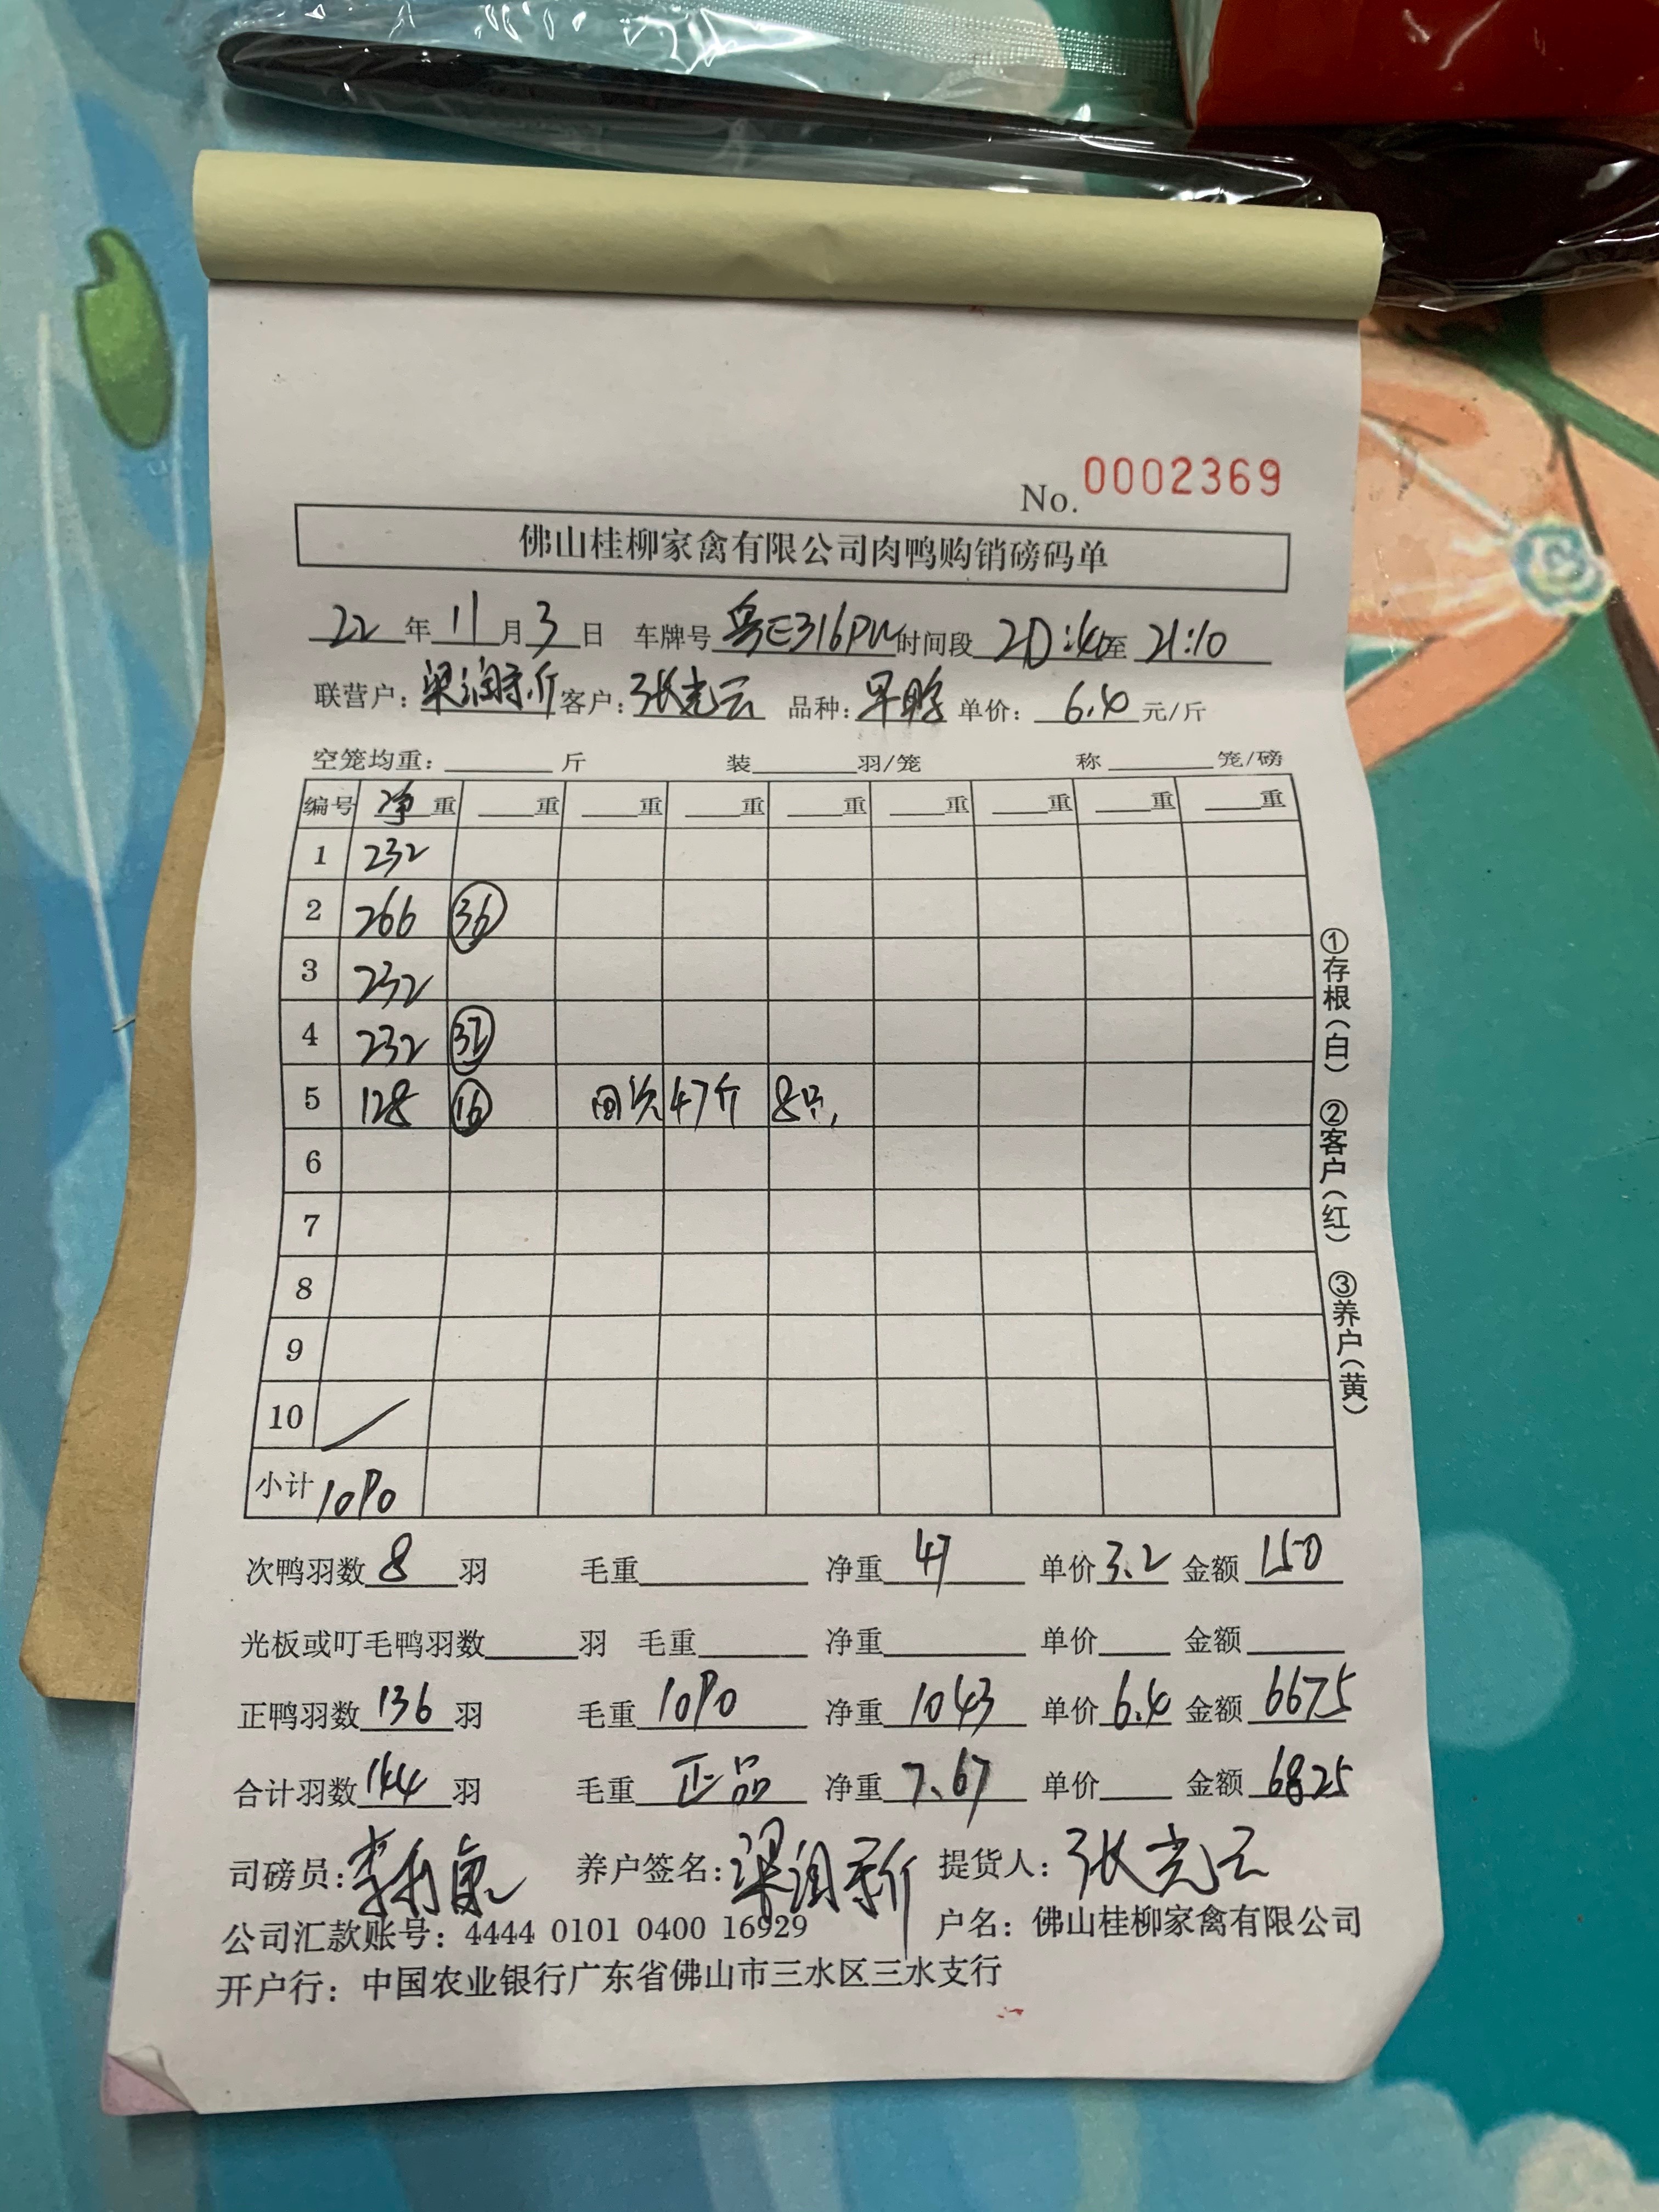 No. 0002369
佛山桂柳家禽有限公司肉鸭购销磅码单
22年11月3日 车牌号 粤E316PU 时间段 20:40至21:10
联营户: 梁润 客户: 张光云 品种: 单价: 6.40元/斤
空笼均重: 斤 装 羽/笼 称 笼/磅
编号 净重 重 重 重 重 重 重 重 重
1 232
2 266 36
3 232
4 232 32
5 128 16 次 47斤 8只
6
7
8
9
10
小计 1090
①存根(白) ②客户(红) ③养户(黄)
次鸭羽数 8 羽 毛重 净重 47 单价 3.2 金额 150
光板或叮毛鸭羽数 羽 毛重 净重 单价 金额
正鸭羽数 136 羽 毛重 1090 净重 1043 单价 6.40 金额 6675
合计羽数 144 羽 毛重 正品 净重 7.67 单价 金额 6825
司磅员: 李 养户签名: 梁润 提货人: 张光云
公司汇款账号: 4444 0101 0400 16929 户名: 佛山桂柳家禽有限公司
开户行: 中国农业银行广东省佛山市三水区三水支行